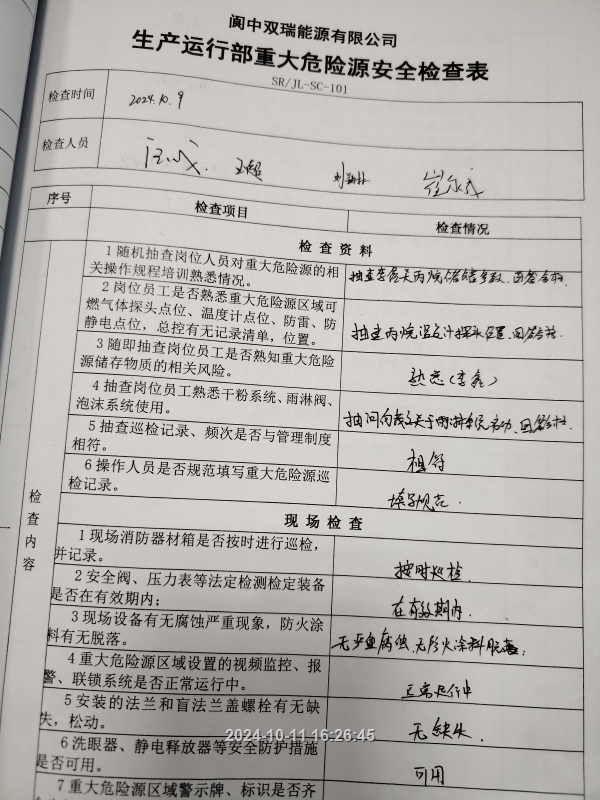 阆中双瑞能源有限公司
生产运行部重大危险源安全检查表
SR/JL-SC-101
检查时间 2024.10.9
检查人员
序号 检查项目 检查情况
检查资料
1 随机抽查岗位人员对重大危险源的相
关操作规程培训熟悉情况。
2 岗位员工是否熟悉重大危险源区域可
燃气体探头点位、温度计点位、防雷、防
静电点位，总控有无记录清单，位置。
3 随即抽查岗位员工是否熟知重大危险
源储存物质的相关风险。
4 抽查岗位员工熟悉干粉系统、雨淋阀、
泡沫系统使用。
5 抽查巡检记录、频次是否与管理制度
相符。
相符
6 操作人员是否规范填写重大危险源巡
检记录。
填写规范.
检查内容
现场检查
1 现场消防器材箱是否按时进行巡检，
并记录。
按时巡检.
2 安全阀、压力表等法定检测检定装备
是否在有效期内；
在有效期内.
3 现场设备有无腐蚀严重现象，防火涂
料有无脱落。
无严重腐蚀、无防火涂料脱落；
4 重大危险源区域设置的视频监控、报
警、联锁系统是否正常运行中。
正常运行中
5 安装的法兰和盲法兰盖螺栓有无缺
失，松动。
无缺失.
6 洗眼器、静电释放器等安全防护措施
是否可用。
可用
7 重大危险源区域警示牌、标识是否齐
2024-10-11 16:26:45